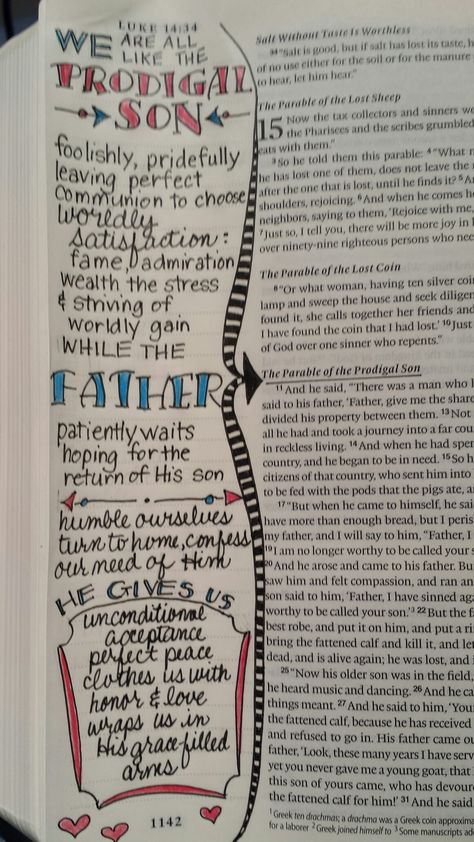 LUKE 14:34
WE ARE ALL
LIKE THE
PRODIGAL
SON
foolishly, pridefully
leaving perfect
communion to choose
worldly
satisfaction:
fame, admiration
wealth the stress
& striving of
worldly gain
WHILE THE
FATHER
patiently waits
hoping for the
return of His son
humble ourselves
turn to home, confess
our need of Him
HE GIVES US
unconditional
acceptance
perfect peace
clothes us with
honor & love
wraps us in
His grace-filled
arms
1142
Salt Without Taste Is Worthless
34 "Salt is good, but if salt has lost its taste, h
of no use either for the soil or for the manure
to hear, let him hear."
The Parable of the Lost Sheep
15 Now the tax collectors and sinners we
the Pharisees and the scribes grumbled
eats with them."
3 So he told them this parable: 4 "What m
he has lost one of them, does not leave the
after the one that is lost, until he finds it? 5 An
shoulders, rejoicing. 6 And when he comes h
neighbors, saying to them, 'Rejoice with me,
7 Just so, I tell you, there will be more joy in
over ninety-nine righteous persons who nee
The Parable of the Lost Coin
8 "Or what woman, having ten silver coin
lamp and sweep the house and seek diligen
found it, she calls together her friends and
I have found the coin that I had lost.' 10 Just
of God over one sinner who repents."
The Parable of the Prodigal Son
11 And he said, "There was a man who h
said to his father, 'Father, give me the share
divided his property between them. 13 Not
all he had and took a journey into a far cou
in reckless living. 14 And when he had spen
country, and he began to be in need. 15 So h
citizens of that country, who sent him into
to be fed with the pods that the pigs ate, a
17 "But when he came to himself, he said
have more than enough bread, but I peris
my father, and I will say to him, "Father, I
19 I am no longer worthy to be called your s
20 And he arose and came to his father. Bu
saw him and felt compassion, and ran an
son said to him, 'Father, I have sinned aga
worthy to be called your son.'3 22 But the fa
best robe, and put it on him, and put a ri
bring the fattened calf and kill it, and let
dead, and is alive again; he was lost, and i
25 "Now his older son was in the field,
he heard music and dancing. 26 And he ca
things meant. 27 And he said to him, 'You
the fattened calf, because he has received
and refused to go in. His father came ou
father, 'Look, these many years I have serv
yet you never gave me a young goat, that
this son of yours came, who has devour
the fattened calf for him!' 31 And he said
1 Greek ten drachmas; a drachma was a Greek coin approxima
for a laborer 2 Greek joined himself to 3 Some manuscripts ad